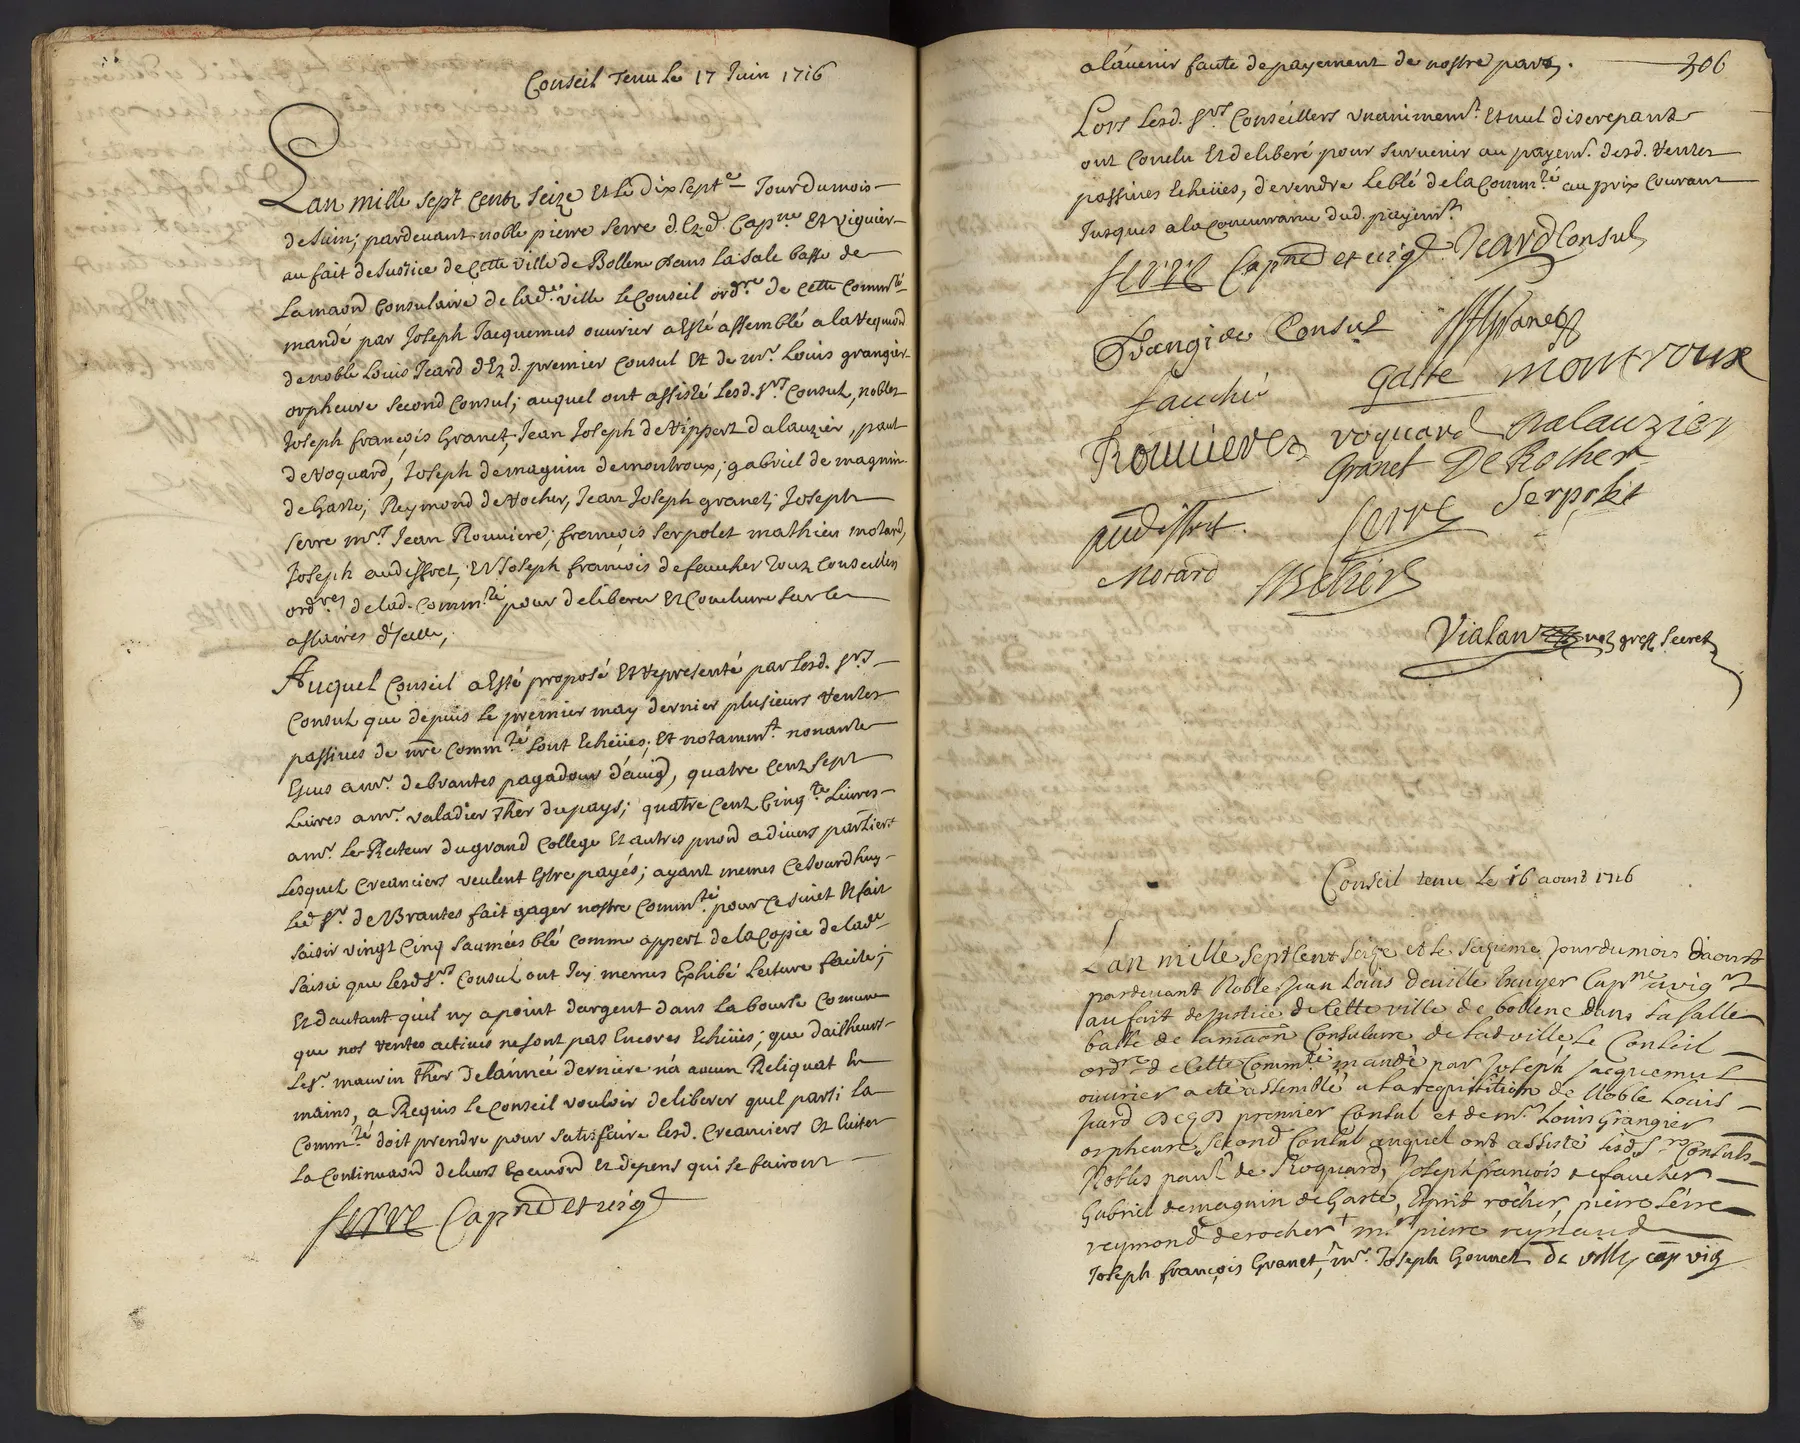 Conseil Tenu Le 17 Juin 1716
Lan mille sept cents seize et le dix septe Jour du mois
de Juin; pardeuant noble pierre serre d.Ez.d. Capne et viguier
au fait de Justice de cette ville de Bollene dans la sale basse de
La maon Consulaire de lade ville le Conseil ordre de cette Commté
mandé par Joseph Jacquemus ouurier a esté assemblé a la requon
de noble Louis Jcard d.Ez.d. premier Consul et de mr. Louis grangier
orpheure second Consul; auquel ont assisté lesd. srs Consul, nobles
Joseph françois Granet, Jean Joseph de Vippert dalauzier, paul
de Roquard, Joseph demagnin demontroux; gabriel de magnin
de Gaste; Reymond de Rocher, Jean Joseph granet; Joseph
serre mrs. Jean Rouuiere; françois serpolet mathieu motard,
Joseph audiffret; et Joseph françois defaucher tous conseillers
ordres de lad. Commté pour deliberer et Conclurre sur les
affaires d'Jcelle,
Auquel Conseil a esté proposé et representé par lesd. srs
Consul que depuis le premier may dernier plusieurs rentes
passiues de nre Commté sont Echeües; et notammt. nonante
Escus a mr. debrantes pagadour d'auig, quatre cent sept
Liures a mr. valadier Ther du pays; quatre cent Cinqte Liures
a mr. Le Recteur du grand College et autres pnon a diuers partiers
Lesquel Creanciers veulent Estre payés; ayant memes Cejourdhuy
Led sr. de Brantes fait gager nostre Commté pour ce suiet et fait
saisir vingt Cinq saumées blé comme appert de la Copie de lade
saisie que lesd srs Consul ont Jcy memes Exhibé Lecture faicte;
Et dautant quil ny a point dargent dans la bourse Comune
que nos rentes actiues ne sont pas Encores Echeües; que dailheurs
Le sr. maurin Ther de lánnée derniere n'a aucun Reliquat en
mains, a Requis le Conseil vouloir deliberer quel parti la
Commté doit prendre pour satisfaire lesd. Creanciers et Euiter
La Continuaon de leurs Execuon et depens qui se fairont
serre Capne et uig
a láuenir faute de payement de nostre part.
306
Lors lesd. srs Conseillers vnanimemt. et nul discrepant
ont Conclu et deliberé pour suruenir au payemt. desd. rentes
passiues Echeües, de vendre le blé de la Commté au prix Courant
Jusques a la Concurrance dud. payemt.
serre Capne et uig Jcard Consul
Grangier Consul
gaste montroux
fauchér
Rouuiere roquard Dalauzier
Granet DeRocher
audiffret serre Serpolet
Motard
Vialan not greff Secret
Conseil tenu Le 16 aoust 1716
Lan mille sept Cent seize et le seizieme Jour du mois daoust
pardeuant Noble Jean Louis deuille Capne vigur
au fait de Justice de Cette ville de bollene dans la salle
basse de la maon Consulaire de lad ville Le Conseil
ordre de Cette Commté mandé par Joseph Jacquemus
ouurier a été assemblé a la requisition de Noble Louis
Jcard premier Consul et de mr. Louis Grangier
orpheure second Consul auquel ont assisté lesd srs Consuls
Nobles paul de Roquard, Joseph françois de faucher
Gabriel demagnin de Gaste, Esprit rocher, pierre serre
reymond derocher + mr pierre reynaud
Joseph françois Granet, mr. Joseph Gonnet De ville cap vig